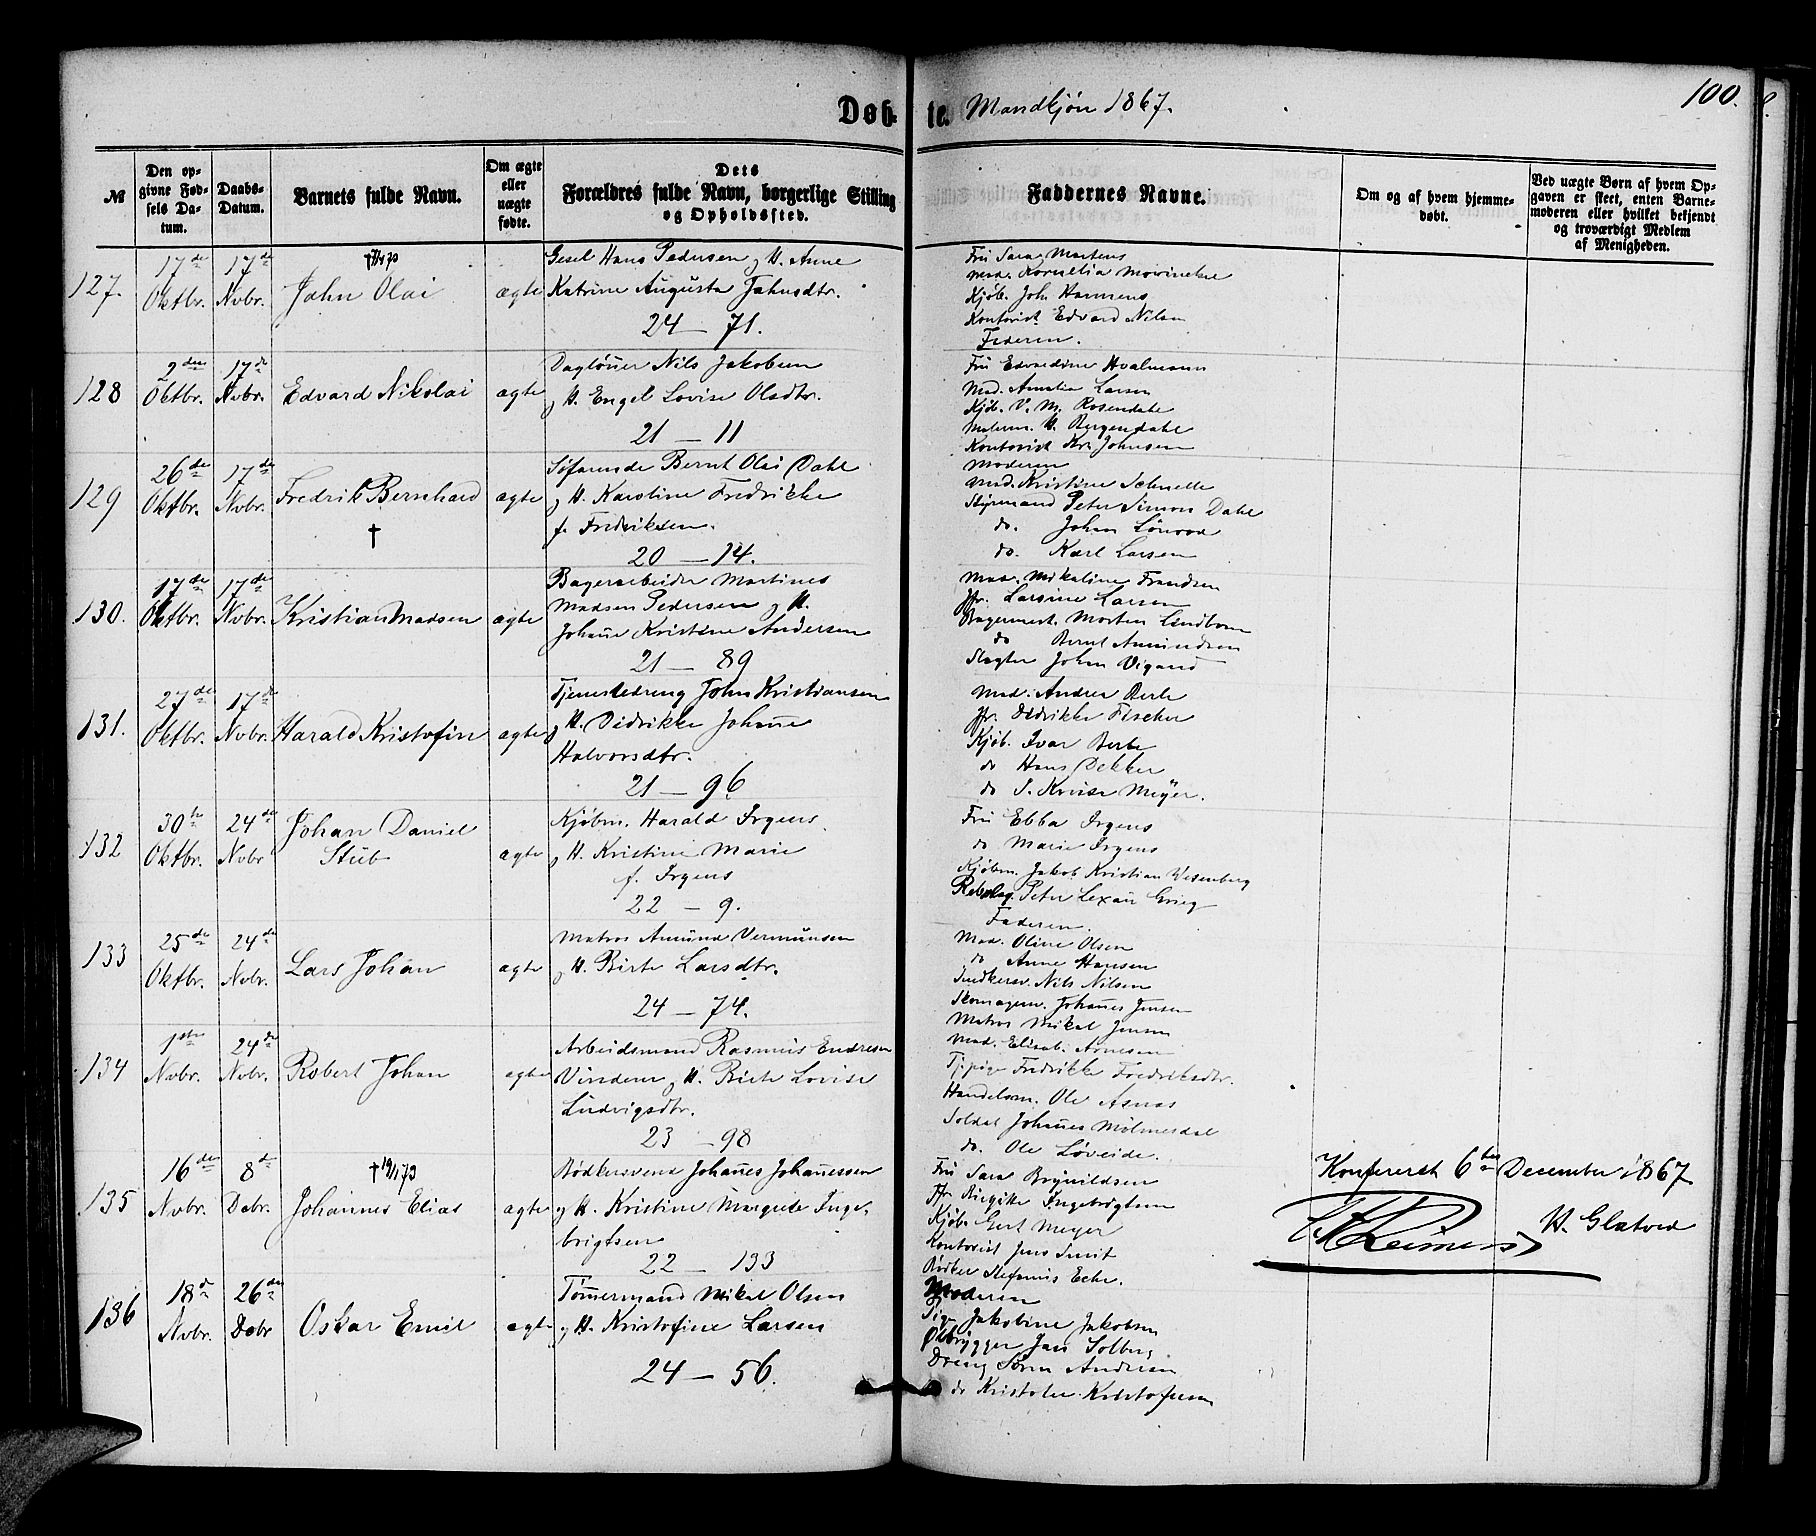 100.
Døbte. Mandkjøn 1867.
№
Den opgivne Fødsels Datum.
Daabs-Datum.
Barnets fulde Navn.
Om ægte eller uægte fødte.
Dets Forældres fulde Navn, borgerlige Stilling og Opholdssted.
Faddernes Navne.
Om og af hvem hjemmedøbt.
Ved uægte Børn af hvem Opgaven er skeet, enten Barnemoderen eller hvilket bekjendt og troværdigt Medlem af Menigheden.
127.
17de Oktbr.
17de Nvbr.
John Olai
ægte
Gesel Hans Pedersen og H. Anne
Katrine Augusta Jahnsdtr.
24 — 71.
Fru Sara Martens
Mad. Kornelia
Kjøb. Joh. Harmens
Kontorist Edvard Nilsen
Faderen.
128
2den Oktbr.
17de Nvbr.
Edvard Nikolai
ægte
Dagløner Nils Jakobsen
og H. Engel Lovise Olsdtr.
21 — 11
Fru Edvardine Hvalmann
Mad. Amalia Larsen
Kjøb. V. M. Rosendahl
Malerm. H. Bergendahl
Kontorist Kr. Johnsen
129
26de Oktbr.
17de Nvbr.
Fredrik Bernhard
†
ægte
Søfarende Bernt Olai Dahl
og H. Karoline Fredrikke
f. Fredriksen.
20 — 14.
Moderen
Mad. Kristine Schnelle
Styrmand Peter Simon Dahl
do. Johan
do. Karl Larsen
130.
17de Oktbr.
17de Nvbr.
Kristian Madsen
ægte
Bagerarbeider Martines
Madsen Pedersen og H.
Johanne Kristine Andersen
21 — 89
Mad. Mikaline Frandsen
Jfr. Larsine Larsen
Bagermest. Morten Lindbom
do Bernt Amundsen
Slagter John Vigand
131.
27de Oktbr.
17de Nvbr.
Harald Kristofin
ægte
Tjenestedreng John Kristiansen
og H. Didrikke Johanne
Halvorsdtr.
21 — 96
Mad. Andrea Berle
Jfr. Didrikke Fischer
Kjøb. Ivar Berle
do Hans Dekker
do S. Kruse Meyer.
132
30te Oktbr.
24de Nvbr
Johan Daniel
Stub
ægte
Kjøbm. Harald Irgens
og H. Kristine Marie
f. Irgens
22 — 9.
Fru Ebba Irgens
do Marie Irgens
Kjøbm. Jakob Kristian Wesenberg
Rebslag. Peter Lexau Grieg
Faderen.
133
25de Oktbr.
24de Nvbr.
Lars Johan
ægte
Matros Amund Vermundsen
og H. Birte Larsdtr.
24 — 74.
Mad. Oline Olsen
do Anne Hansen
Nils Nilsen
Skomagerm. Johannes Jensen
Matros Mikal Jensen
134
1ste Nvbr.
24de Nvbr.
Robert Johan
ægte
Arbeidsmand Rasmus Endresen
Vindenes og H. Birte Lovise
Ludvigsdtr.
23 — 98
Mad. Elisab. Arnesen
Tj.pige Fredrikke Fredriksdtr.
Handelsm. Ole Asnæs
Soldat Johannes Mølmesdal
do. Ole Løveide.
135
16de Nvbr.
8de Dcbr.
† 19/1 73
Johannes Elias
ægte
Bødkersvend Johannes Johannessen
og H. Kristine Margrete Inge-
brigtsen
22 — 133
Fru Sara Brynildsen
Jfr. Birgitte Ingebrigtsen
Kjøb. Gert Meyer
Kontorist Jens Smit
Bødker Stefanus Eche.
Konfereret 6te December 1867
Reimers
H. Glatved
136
18de Nvbr.
26de Dcbr
Oskar Emil
ægte
Tømmermand Mikal Olsen
og H. Kristofine Larsen
24 — 56.
Moderen
Pige Jakobine Jakobsen
Ølbrygger Jan Solberg
Dreng Søren Andersen
do Kristofer Kristofersen